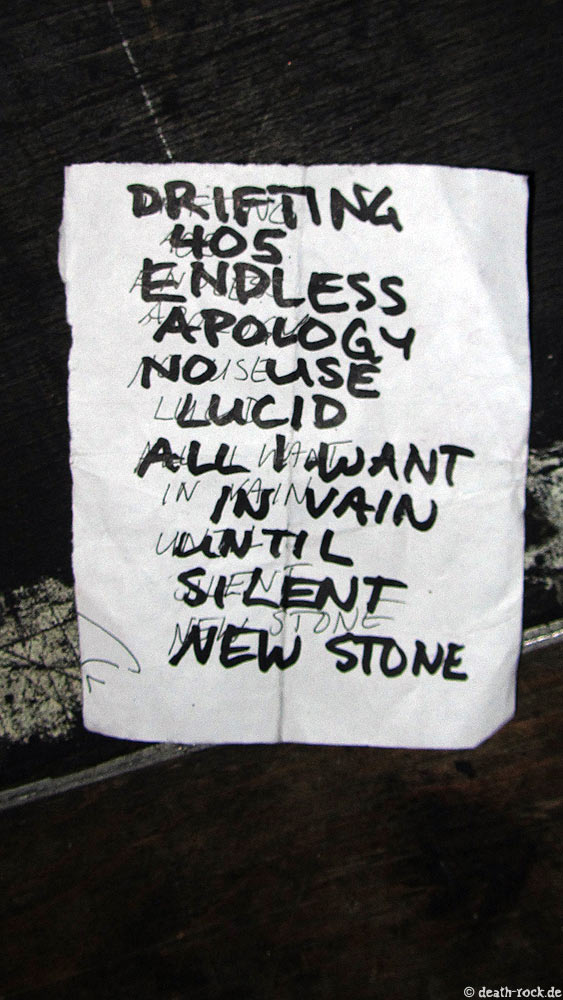 DRIFTING
405
ENDLESS
APOLOGY
NO USE
LUCID
ALL I WANT
IN VAIN
UNTIL
SILENT
NEW STONE
© death-rock.de